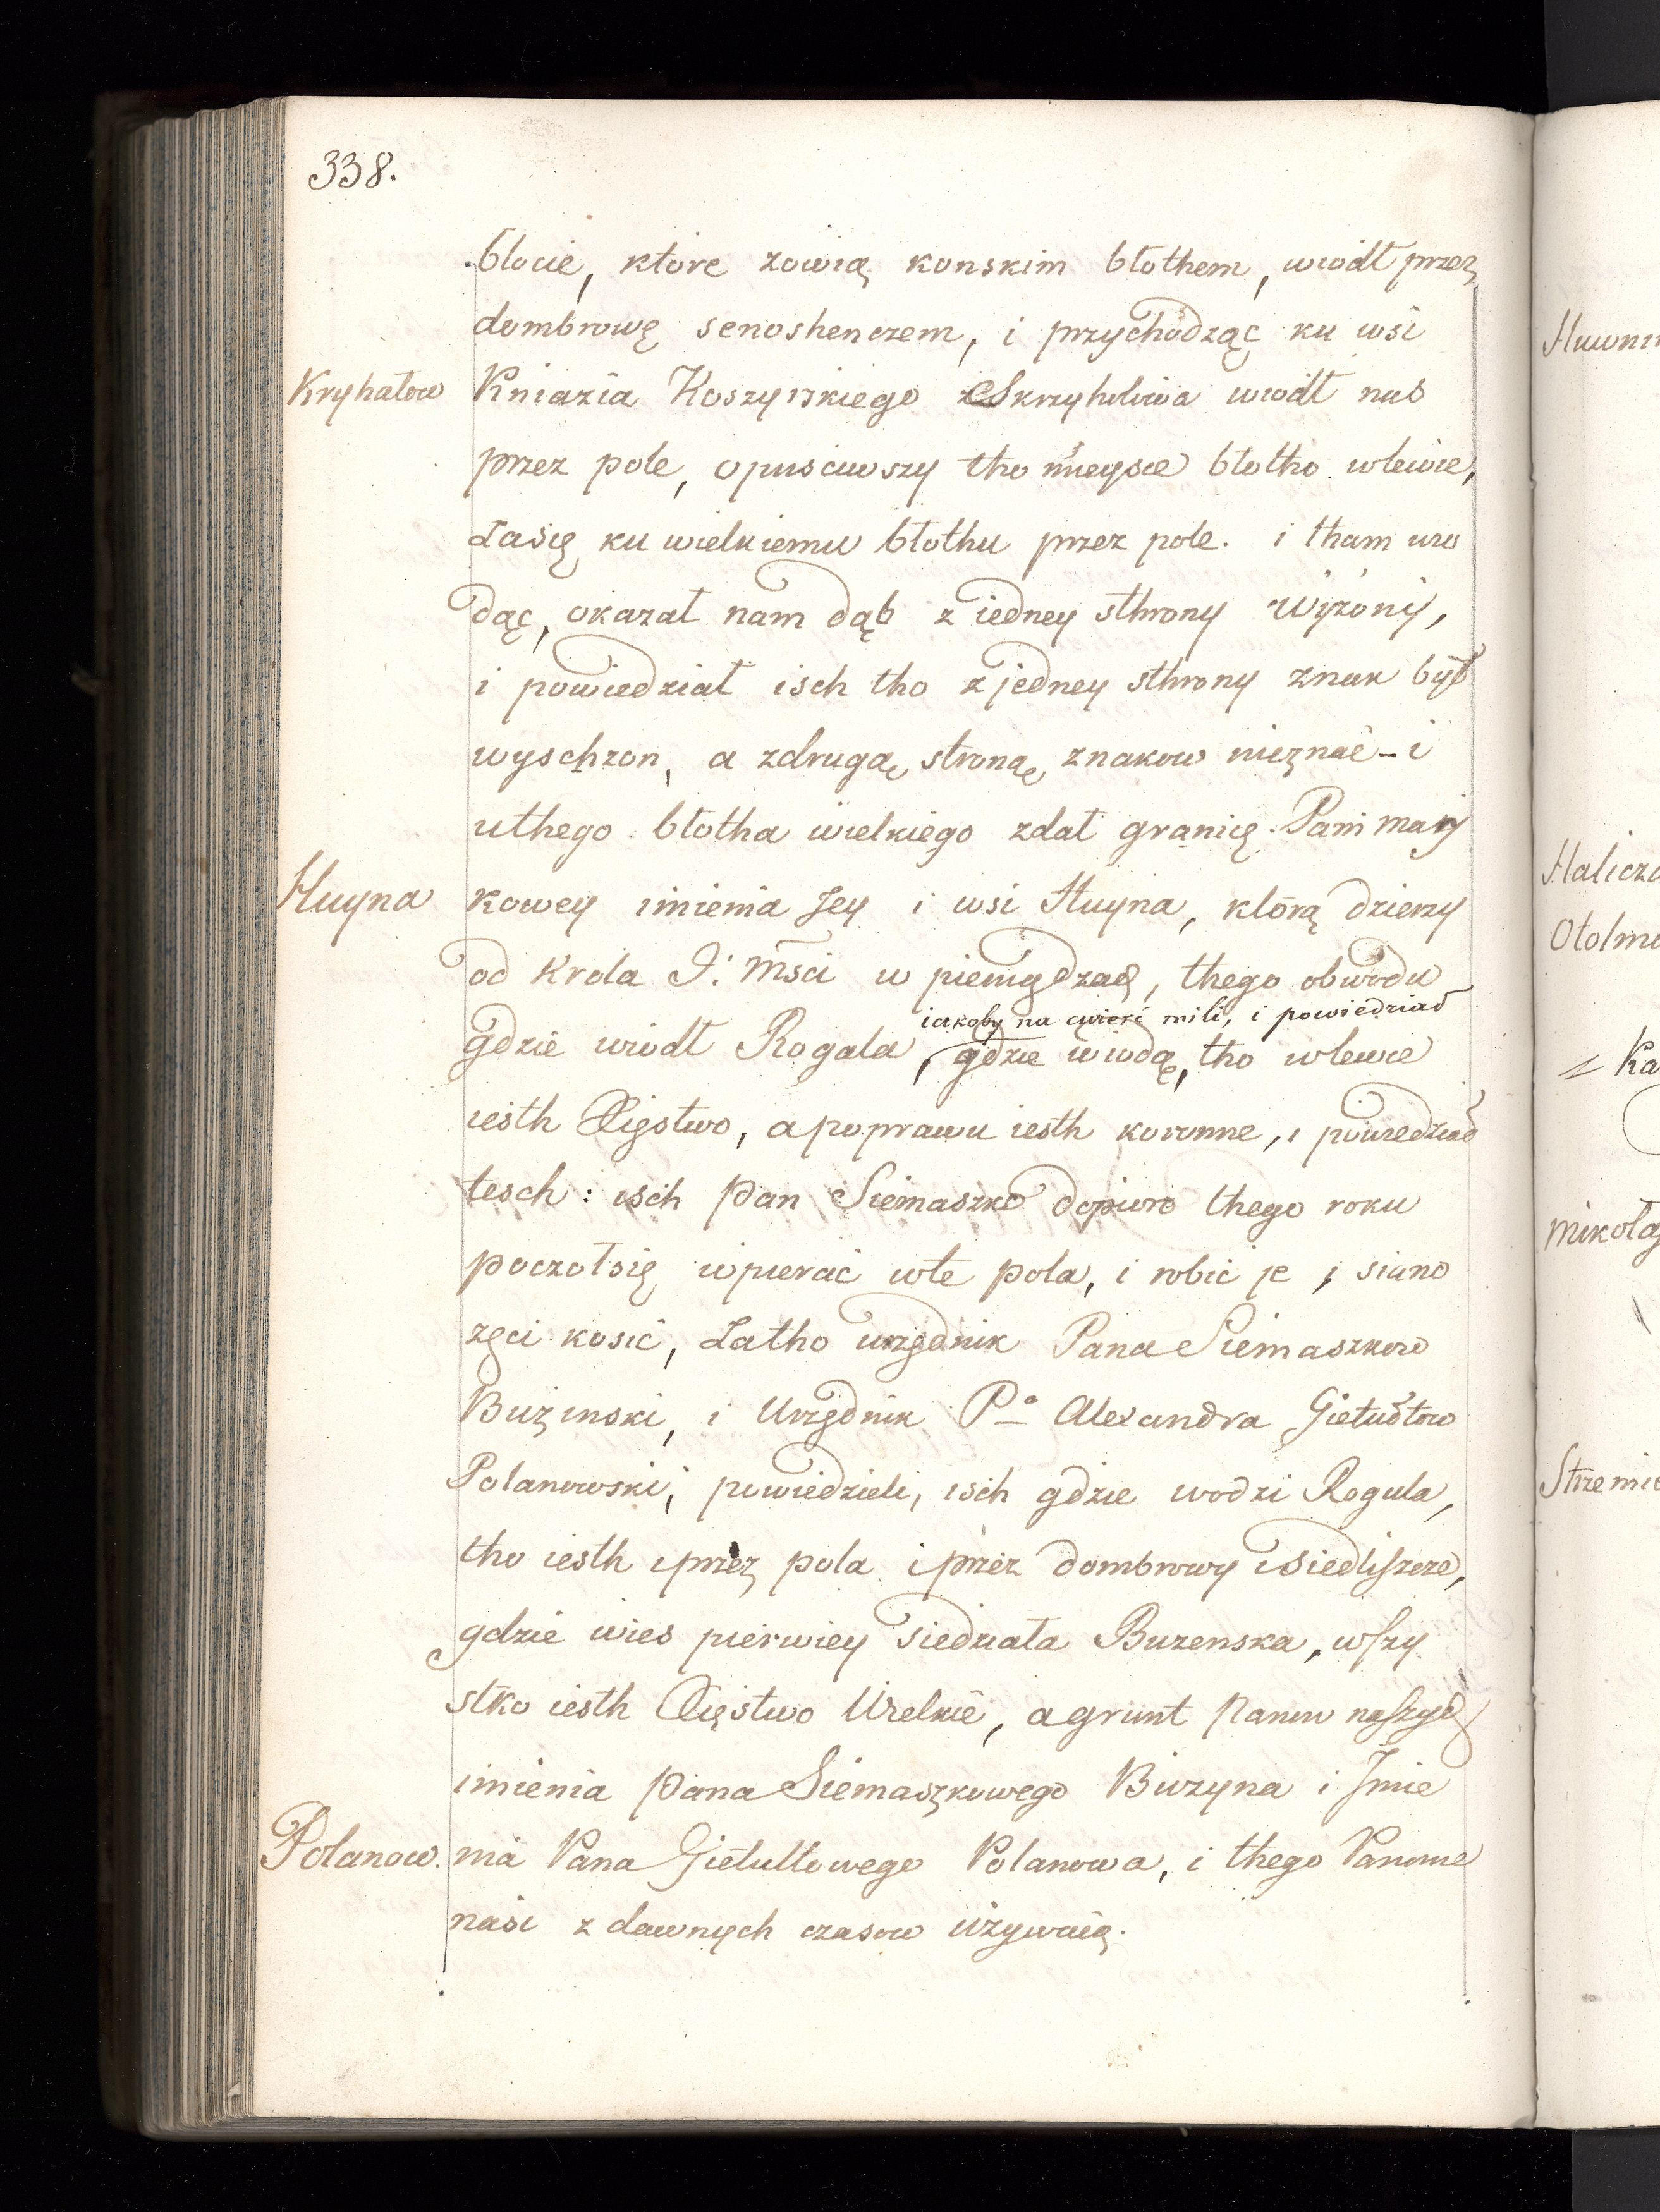 338.
błocie, które zowią konskim błothem, wiodł przez
dombrowę senoshenczem, i przychodząc ku wsi
Kryhatow
Kniazia Koszyrskiego z Skrzyholowa wiodł nas
przez pole, opuściwszy tho mieysce błotho wlewie,
Zasię ku wielkiemu błothu przez pole. i tham wio
dąc, okazał nam dąb z iedney sthrony
i powiedział isch tho z jedney sthrony znak był
wyschzon, a zdrugą stroną znakow nieznać - i
uthego błotha wielkiego zdał granicę Pani maj
Huyna
kowey imienia Jey i wsi Huyna, którą dzierzy
od Krola J: Mści w pieniądzach, thego obwodu
iakoby na cwierć mili, i powiedział
gdzie wiodł Rogala, gdzie wiodą, tho wlewie
iesth Xięstwo, apoprawu iesth koronne, i powiedział
tesch: isch Pan Siemaszko dopiuro thego roku
poczołsię wpierać wte pola, i robić je i siano
zęci kosić, Zatho urzędnik Pana Siemaszkow
Buzinski, i Urzędnik Pª Alexandra Giełułtow
Polanowski, powiedzieli, isch gdzie wodzi Rogula,
tho iesth iprzez pola iprzez dombrowy isiedliszcze,
gdzie wies pierwiey siedziała Buzenska, wszy
stko iesth Xięstwo Wielkie, agrunt Panow naszych
imienia Pana Siemaszkowego Biuzyna i Jmie
Polanow.
nia Pana Giełułtowego Polanowa, i thego Panowie
nasi z dawnych czasow używaią.
Halicz
Mikołaj